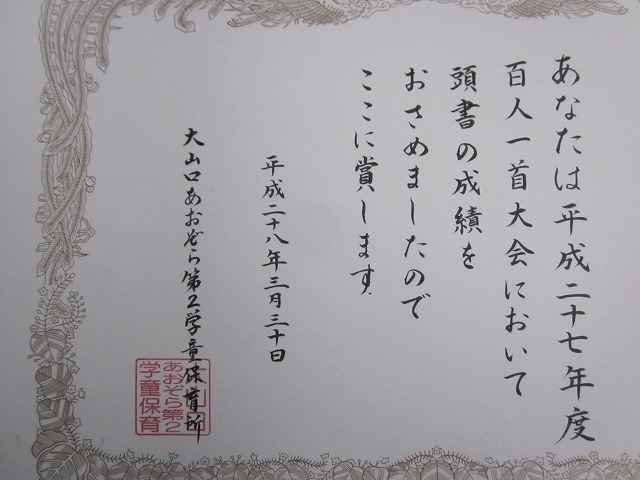 あなたは平成二十七年度
百人一首大会において
頭書の成績を
おさめましたので
ここに賞します
平成二十八年三月三十日
大山口あおぞら第2学童保育所
大山口
あおぞら第2
学童保育